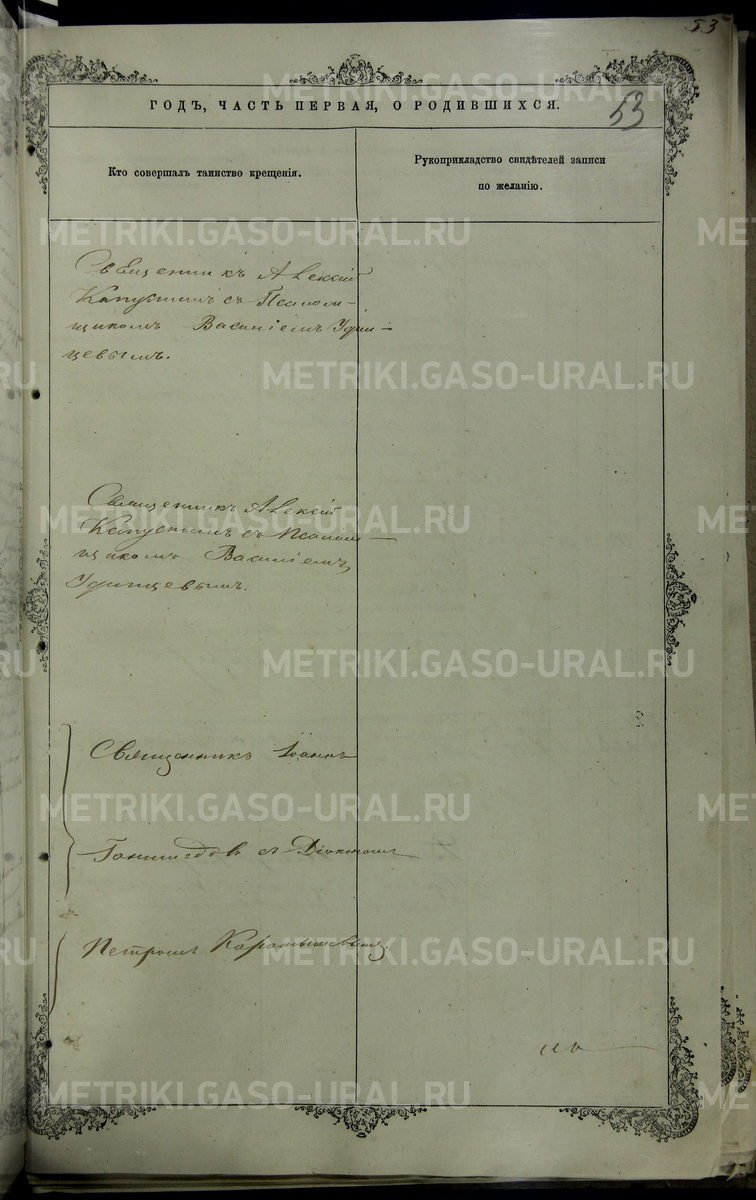 53
ГОДЪ, ЧАСТЬ ПЕРВАЯ, О РОДИВШИХСЯ.
53
Кто совершалъ таинство крещенія.
Рукоприкладство свидѣтелей записи
по желанію.
Священникъ Алексій
Капустинъ съ Псалом-
щикомъ Василіемъ Уфин-
цевымъ.
Священникъ Алексій
Капустинъ съ Псалом-
щикомъ Василіемъ
Уфинцевымъ.
Священникъ Іоаннъ
съ Діакономъ
Петромъ
METRIKI.GASO-URAL.RU